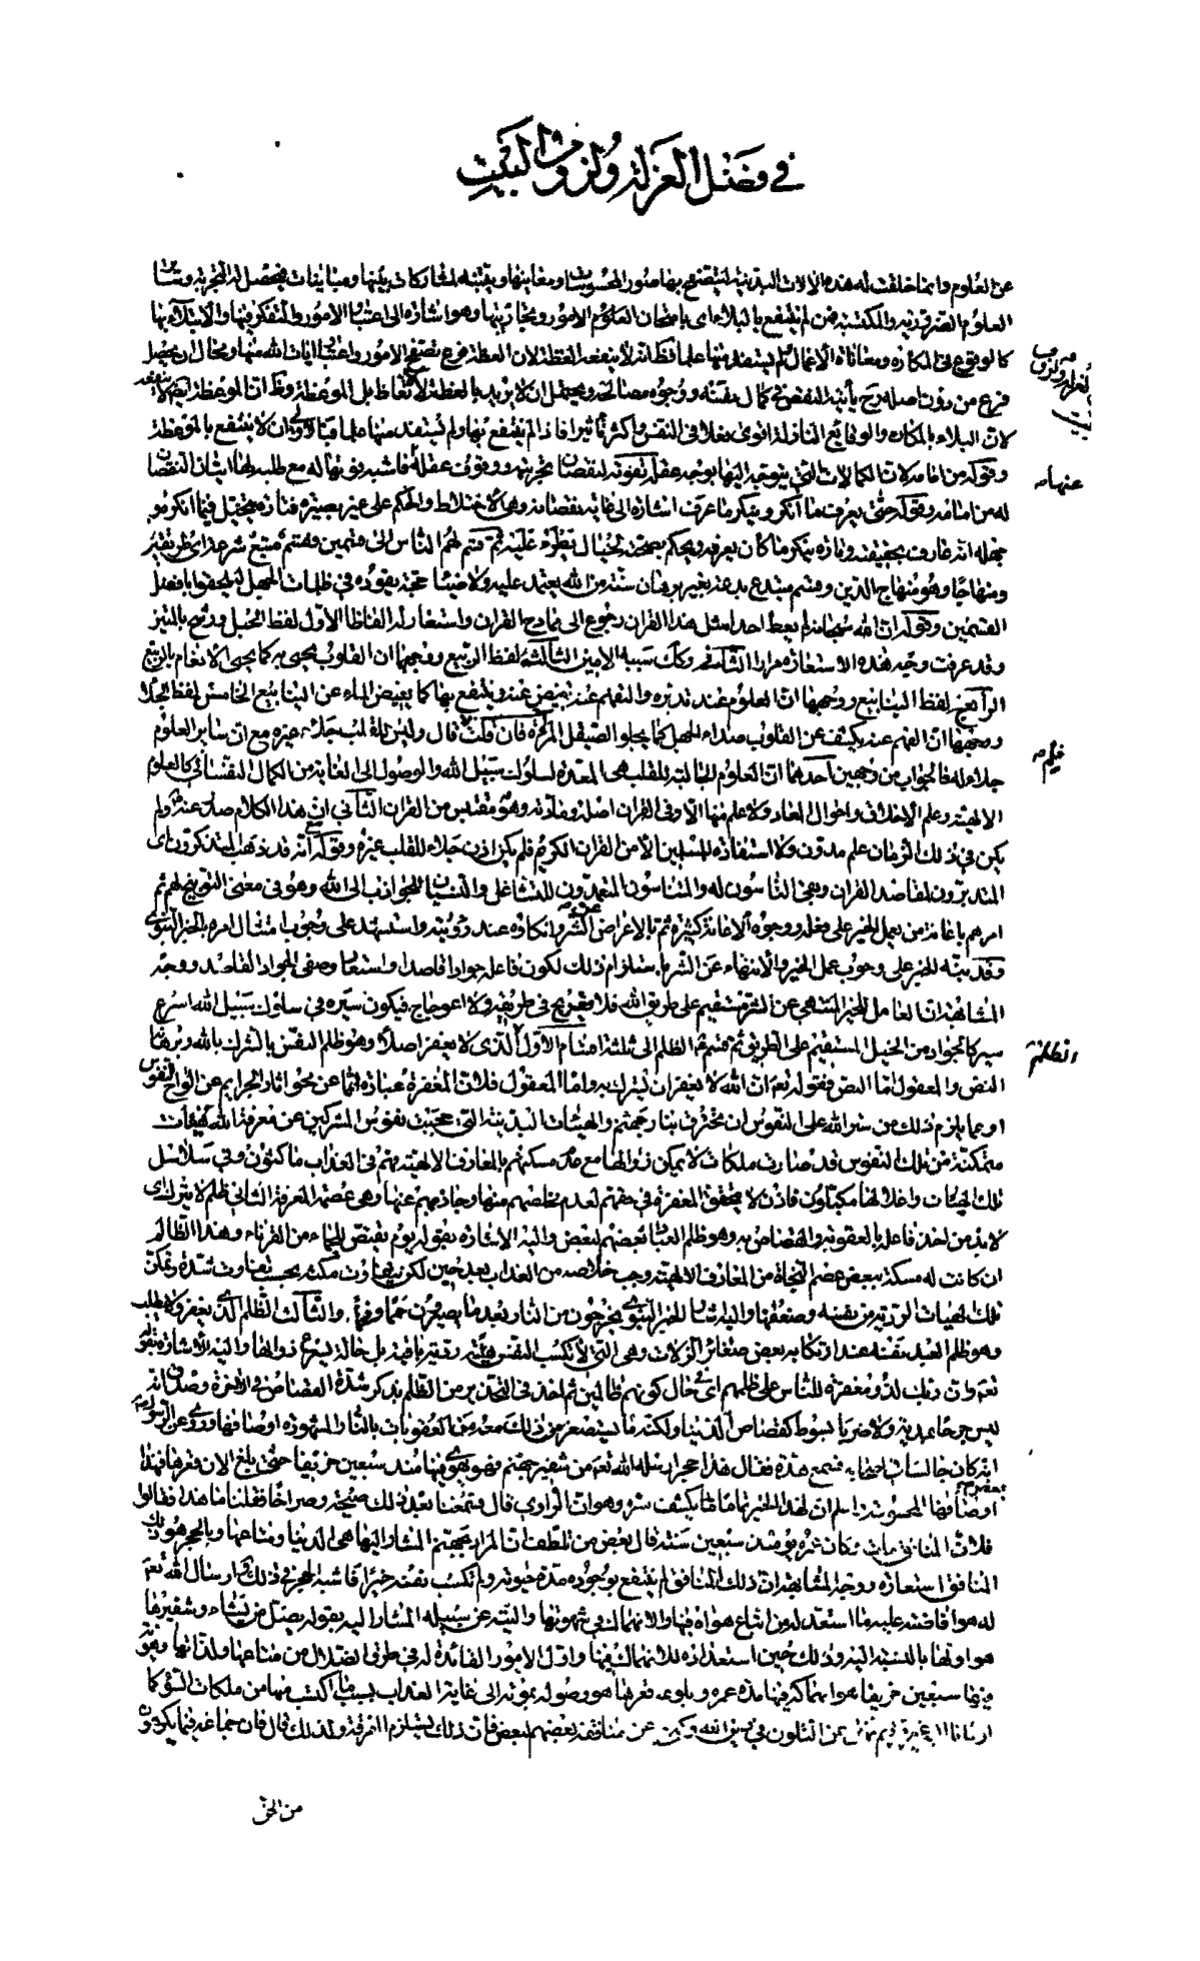 في فضل العزلة ولزوم البيت
عن العلوم وانما خلقت له هذه الالات البدنية ليتصفح بها صور المحسوسات ومعانيها ويتنبه لمشاركات بينها ومباينات فيحصل له التجربة وسائر
العلوم الضرورية والمكتسبة فمن لم ينتفع بالبلاء اى بامتحان العلوم الامور وتجاربها وهو اشارة الى اعتبار الامور والتفكر فيها والابتلاء بها
كالوقوع في المكاره ومعاناة الاعمال ولم يستفد منها علما فظاهر انه لا ينفعه العظة لان العظة فرع تصفح الامور واعتبار ايات الله منها ومحال ان يحصل
فرع من دون اصله
لان البلاء بالمكاره والوقائع النازلة اقوى فعلا في النفس واكثر تاثيرا فاذا لم ينتفع بها ولم يستفد منها علما فبالاولى ان لا ينتفع بالموعظة
وقوله من امامه لان الكمالات التي يتوجه اليها بوجه عقله تفوته لنقصان تجربته ووقوف عقله فاشبه فوتها له مع طلبه لها اتيان النقصان
له من امامه وقوله حتى يعرف ما انكر وينكر ما عرف اشارة الى غاية نقصانه وهي الاختلاط والحكم على غير بصيرة فتارة يتخيل فيما انكره و
جهله انه عارف بحقيقته وتارة ينكر ما كان يعرفه ويحكم بصحته لخيال يطرء عليه ثم قسم لهم الناس الى قسمين قسم متبع شرعة اى طريقة
ومنهاجا وهو منهاج الدين وقسم مبتدع بدعة بغير برهان سنة من الله يعتمد عليه ولا ضياء حجة يقوده في ظلمات الجهل ليلحقوا بافضل
القسمين وقوله ان الله سبحانه لم يعط احدا مثل هذا القران رجوع الى مادح القران واستعار له الفاظا الاول لفظ الحبل ورشح بالمتين
وقد عرفت وجه هذه الاستعارة مرارا الثاني وكذلك سببه الامين الثالث لفظ الربيع ووجهها ان القلوب يحيى به كما يحيى الانعام بالربيع
الرابع لفظ الينابيع ووجهها ان العلوم عند تدبره والتفهم عنه يفيض عنه وينتفع بها كما يفيض الماء عن الينابيع الخامس لفظ الجلاء
ووجهها ان الفهم عنه يكشف عن القلوب صداء الجهل كما يجلو الصيقل المرآة فان قلت قال وليس للقلب جلاء غيره مع ان سائر العلوم
جلاء له فالجواب من وجهين احدهما ان العلوم الجالية للقلب هي المعدة لسلوك سبيل الله والوصول الى الغاية من الكمال النفساني كالعلوم
الالهية وعلم الاخلاق واحوال المعاد ولا علم منها الا وفي القران اصله ومادته وهو مقتبس من القران الثاني ان هذا الكلام صدر عنه ولم
يكن في ذلك الزمان علم مدون ولا استفادة للمسلمين الا من القران الكريم فلم يكن اذن جلاء للقلب غيره وقوله مع انه قد ذهب المتذكرون اى
المتدبرون لمقاصد القران وبقي الناسون له والمتناسون المتعمدون للتشاغل والنسيان للجواذب الى الله وهو في معنى التوبيخ لهم ثم
امرهم باعانة من يعمل الخير على فعله ووجوه الاعانة كثيرة ثم بالاعراض عن الشر وانكاره عند رؤيته واستشهد على وجوب امتثال امره بالخبر النبوى
وقد نبه الخبر على وجوب عمل الخير والانتهاء عن الشر باستلزام ذلك لكون فاعله جوادا قاصدا واستعار وصفى الجواد القاصد ووجه
المشابهة ان العامل للخير المنتهي عن الشر مستقيم على طريق الله فلا تعريج في طريقه ولا اعوجاج فيكون سيره في سلوك سبيل الله اسرع
سير كالجواد من الخيل المستقيم على الطريق ثم قسم الظلم الى ثلثة اقسام الاول الذى لا يغفر اصلا وهو ظلم النفس بالشرك بالله وبرهانه
النص والمعقول اما النص فقوله تعم ان الله لا يغفر ان يشرك به واما المعقول فلان المغفرة عبارة اما عن محو اثار الجرايم عن الواح النفوس
او عما يلزم ذلك من ستر الله على النفوس ان تحترق بنار جهنم والهيئات البدنية التي حجبت نفوس المشركين عن معرفة الله كهيئات
متمكنة من تلك النفوس قد صارت ملكات لا يمكن زوالها مع عدم مسكتهم بالمعارف الالهية فهم في العذاب ماكثون وفي سلاسل
تلك الهيئات واغلالها مكبلون فاذن لا يتحقق المغفرة في حقهم لعدم مخلصهم منها وجاذبهم عنها وهي عصمة المعرفة الثاني ظلم لا يترك اى
لا بد من اخذ فاعله بالعقوبة والقصاص به وهو ظلم العباد بعضهم لبعض واليه الاشارة بقوله يوم يقتص للجماء من القرناء وهذا الظالم
ان كانت له مسكة ببعض عصم النجاة من المعارف الالهية وجب خلاصه من العذاب بعد حين لكن يتفاوت مكثه بحسب تفاوت شدة تمكن
تلك الهيئات الردية من نفسه وضعفها واليه اشار الخبر النبوى يخرجون من النار بعد ما يصيرون حمما وفحما والثالث الظلم الذى يغفر ولا يطلب
وهو ظلم العبد نفسه عند ارتكابه بعض صغائر الزلات وهي التي لا تكسب النفس هيئة ردية باقية بل حالة يسرع زوالها واليه الاشارة بقوله
تعم وان ربك لذو مغفرة للناس على ظلمهم اى في حال كونهم ظالمين ثم اخذ في التحذير من الظلم بذكر شدة القصاص في الاخرة وصدق انه
ليس جرحا بمدية ولا ضربا بسوط كقصاص الدنيا ولكنه ما يستصغر ذلك معه من العقوبات بالنار المشهورة اوصافها وروى عن الرسول
انه كان جالسا في اصحابه فسمع هدة فقال هذا حجر ارسله الله تعم من شفير جهنم فهو يهوى فيها منذ سبعين خريفا حتى بلغ الان قعرها فهذا
اوصافها المحسوسة واعلم ان لهذا الخبر تماما ما يكشف سره وهو ان الراوى قال فسمعنا بعد ذلك صيحة وصراخا فقلنا ما هذا فقالوا
فلان المنافق مات وكان عمره يومئذ سبعين سنة قال بعض من تلطف ان المراد بجهنم المشار اليها هي الدنيا ومتاعها وبالحجر هو ذلك
المنافق استعارة ووجه المشابهة ان ذلك المنافق لم ينتفع بوجوده مدة حيوته ولم تكسب نفسه خيرا فاشبه الحجر في ذلك وارسال الله تعم
له هو افاضته عليه ما استعد له من اتباع هواه فيها والانهماك في شهواتها والتيه عن سبيله المشار اليه بقوله يضل من يشاء وشفيرها
هو اولها بالنسبة اليه وذلك حين استعداده للانهماك فيها واول الامور القائدة له في طرق الضلال من متاعها ولذاتها وهويه
فيها سبعين خريفا هو انهماكه فيها مدة عمره وبلوغه قعرها هو وصوله بموته الى غاية العذاب بسبب ما اكتسب منها من ملكات السوء كما
عن التلون في دين الله عن منافقة بعضهم لبعض فان ذلك يستلزم الفرقة ولذلك قال فان جماعة فيما يكرهون
من الحق
في العزلة ولزوم البيت
عنها
الظلمة